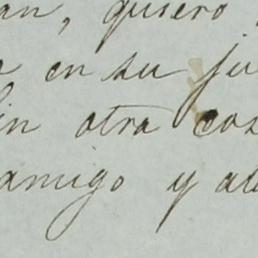 an, quiero
en su ju
in otra cos
amigo y at